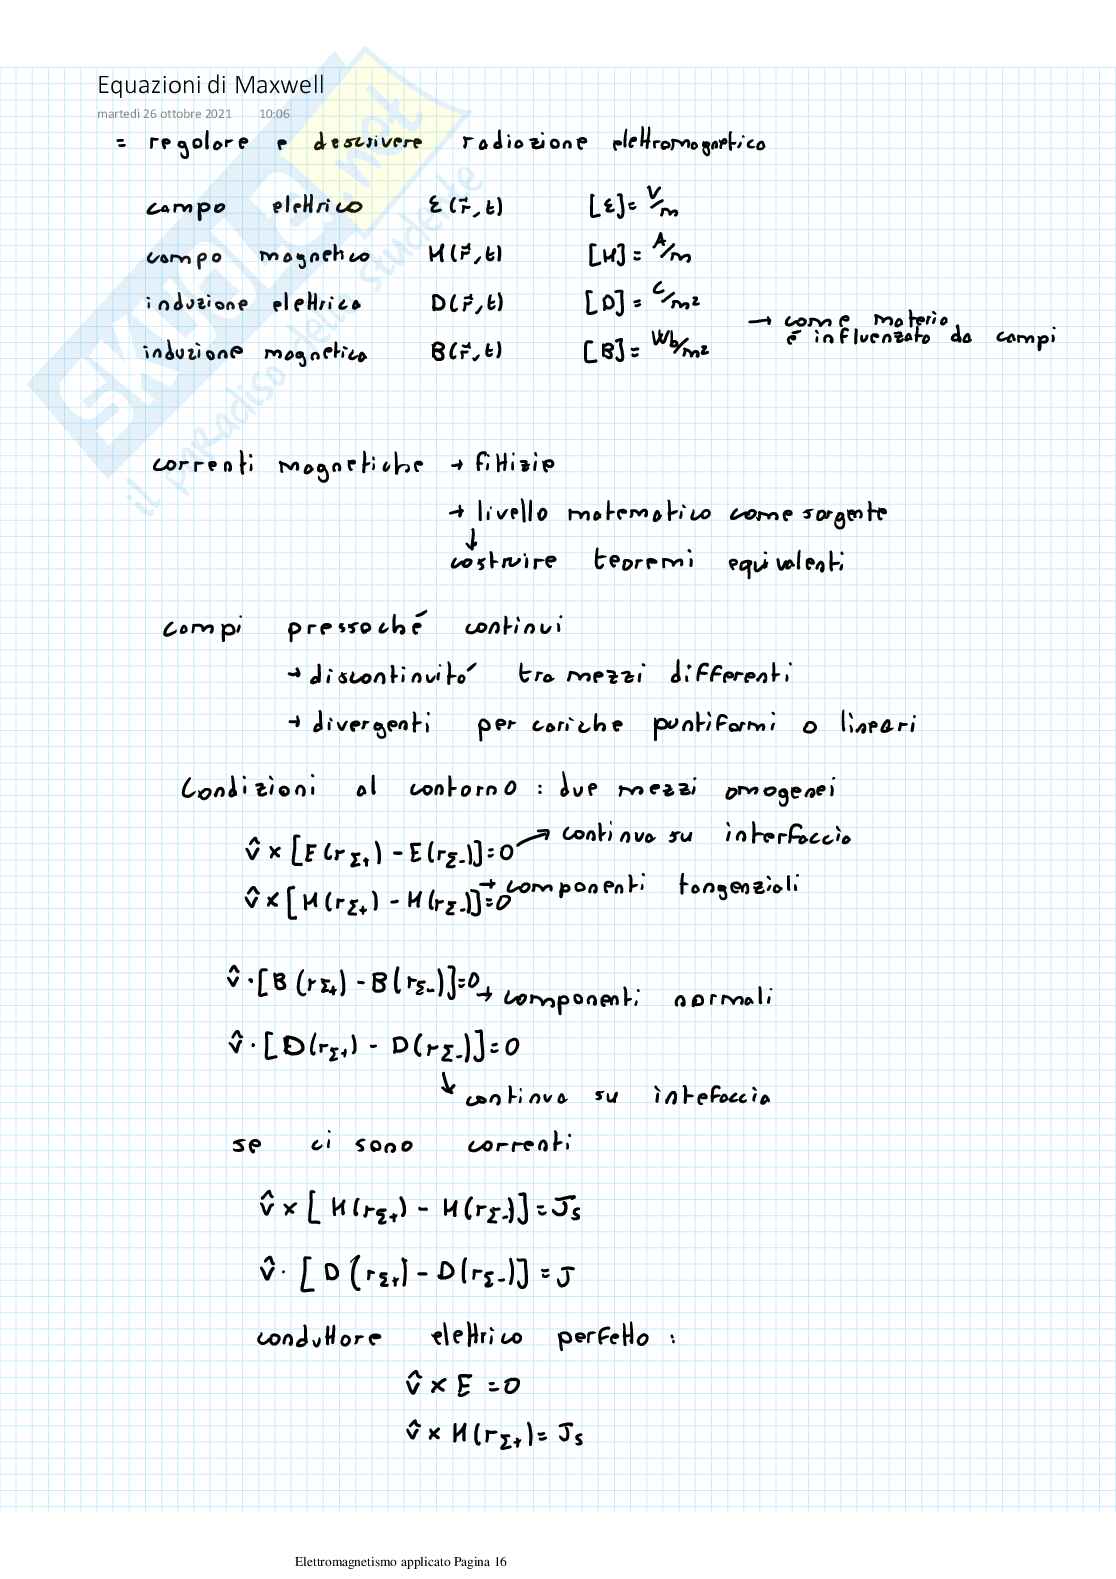 Equazioni di Maxwell
martedì 26 ottobre 2021 10:06
= regolare e descrivere radiazione elettromagnetica
campo elettrico ε(r⃗,t) [ε]= V/m
campo magnetico H(r⃗,t) [H]= A/m
induzione elettrica D(r⃗,t) [D]= C/m²
induzione magnetica B(r⃗,t) [B]= Wb/m²
→ come materia
è influenzata da campi
correnti magnetiche → fittizie
→ livello matematico come sorgente
↓
costruire teoremi equivalenti
campi pressoché continui
→ discontinuità tra mezzi differenti
→ divergenti per cariche puntiformi o lineari
Condizioni al contorno : due mezzi omogenei
v̂ × [E(rΣ+) - E(rΣ-)]=0 → continua su interfaccia
v̂ × [H(rΣ+) - H(rΣ-)]=0 → componenti tangenziali
v̂ · [B(rΣ+) - B(rΣ-)]=0 → componenti normali
v̂ · [D(rΣ+) - D(rΣ-)]=0
↳ continua su intefaccia
se ci sono correnti
v̂ × [H(rΣ+) - H(rΣ-)] = Js
v̂ · [D(rΣ+) - D(rΣ-)] = J
conduttore elettrico perfetto :
v̂ × E = 0
v̂ × H(rΣ+) = Js
Elettromagnetismo applicato Pagina 16
SKUOLA.net
il paradiso dello studente